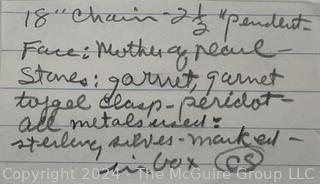 18" Chain - 2 1/2 "pendent -
Face: Mother of pearl -
Stones: garnet, garnet
toggel clasp - peridot -
all metals used:
sterling silver - marked -
in box CS
Copyright 2024 - The McGuire Group LLC